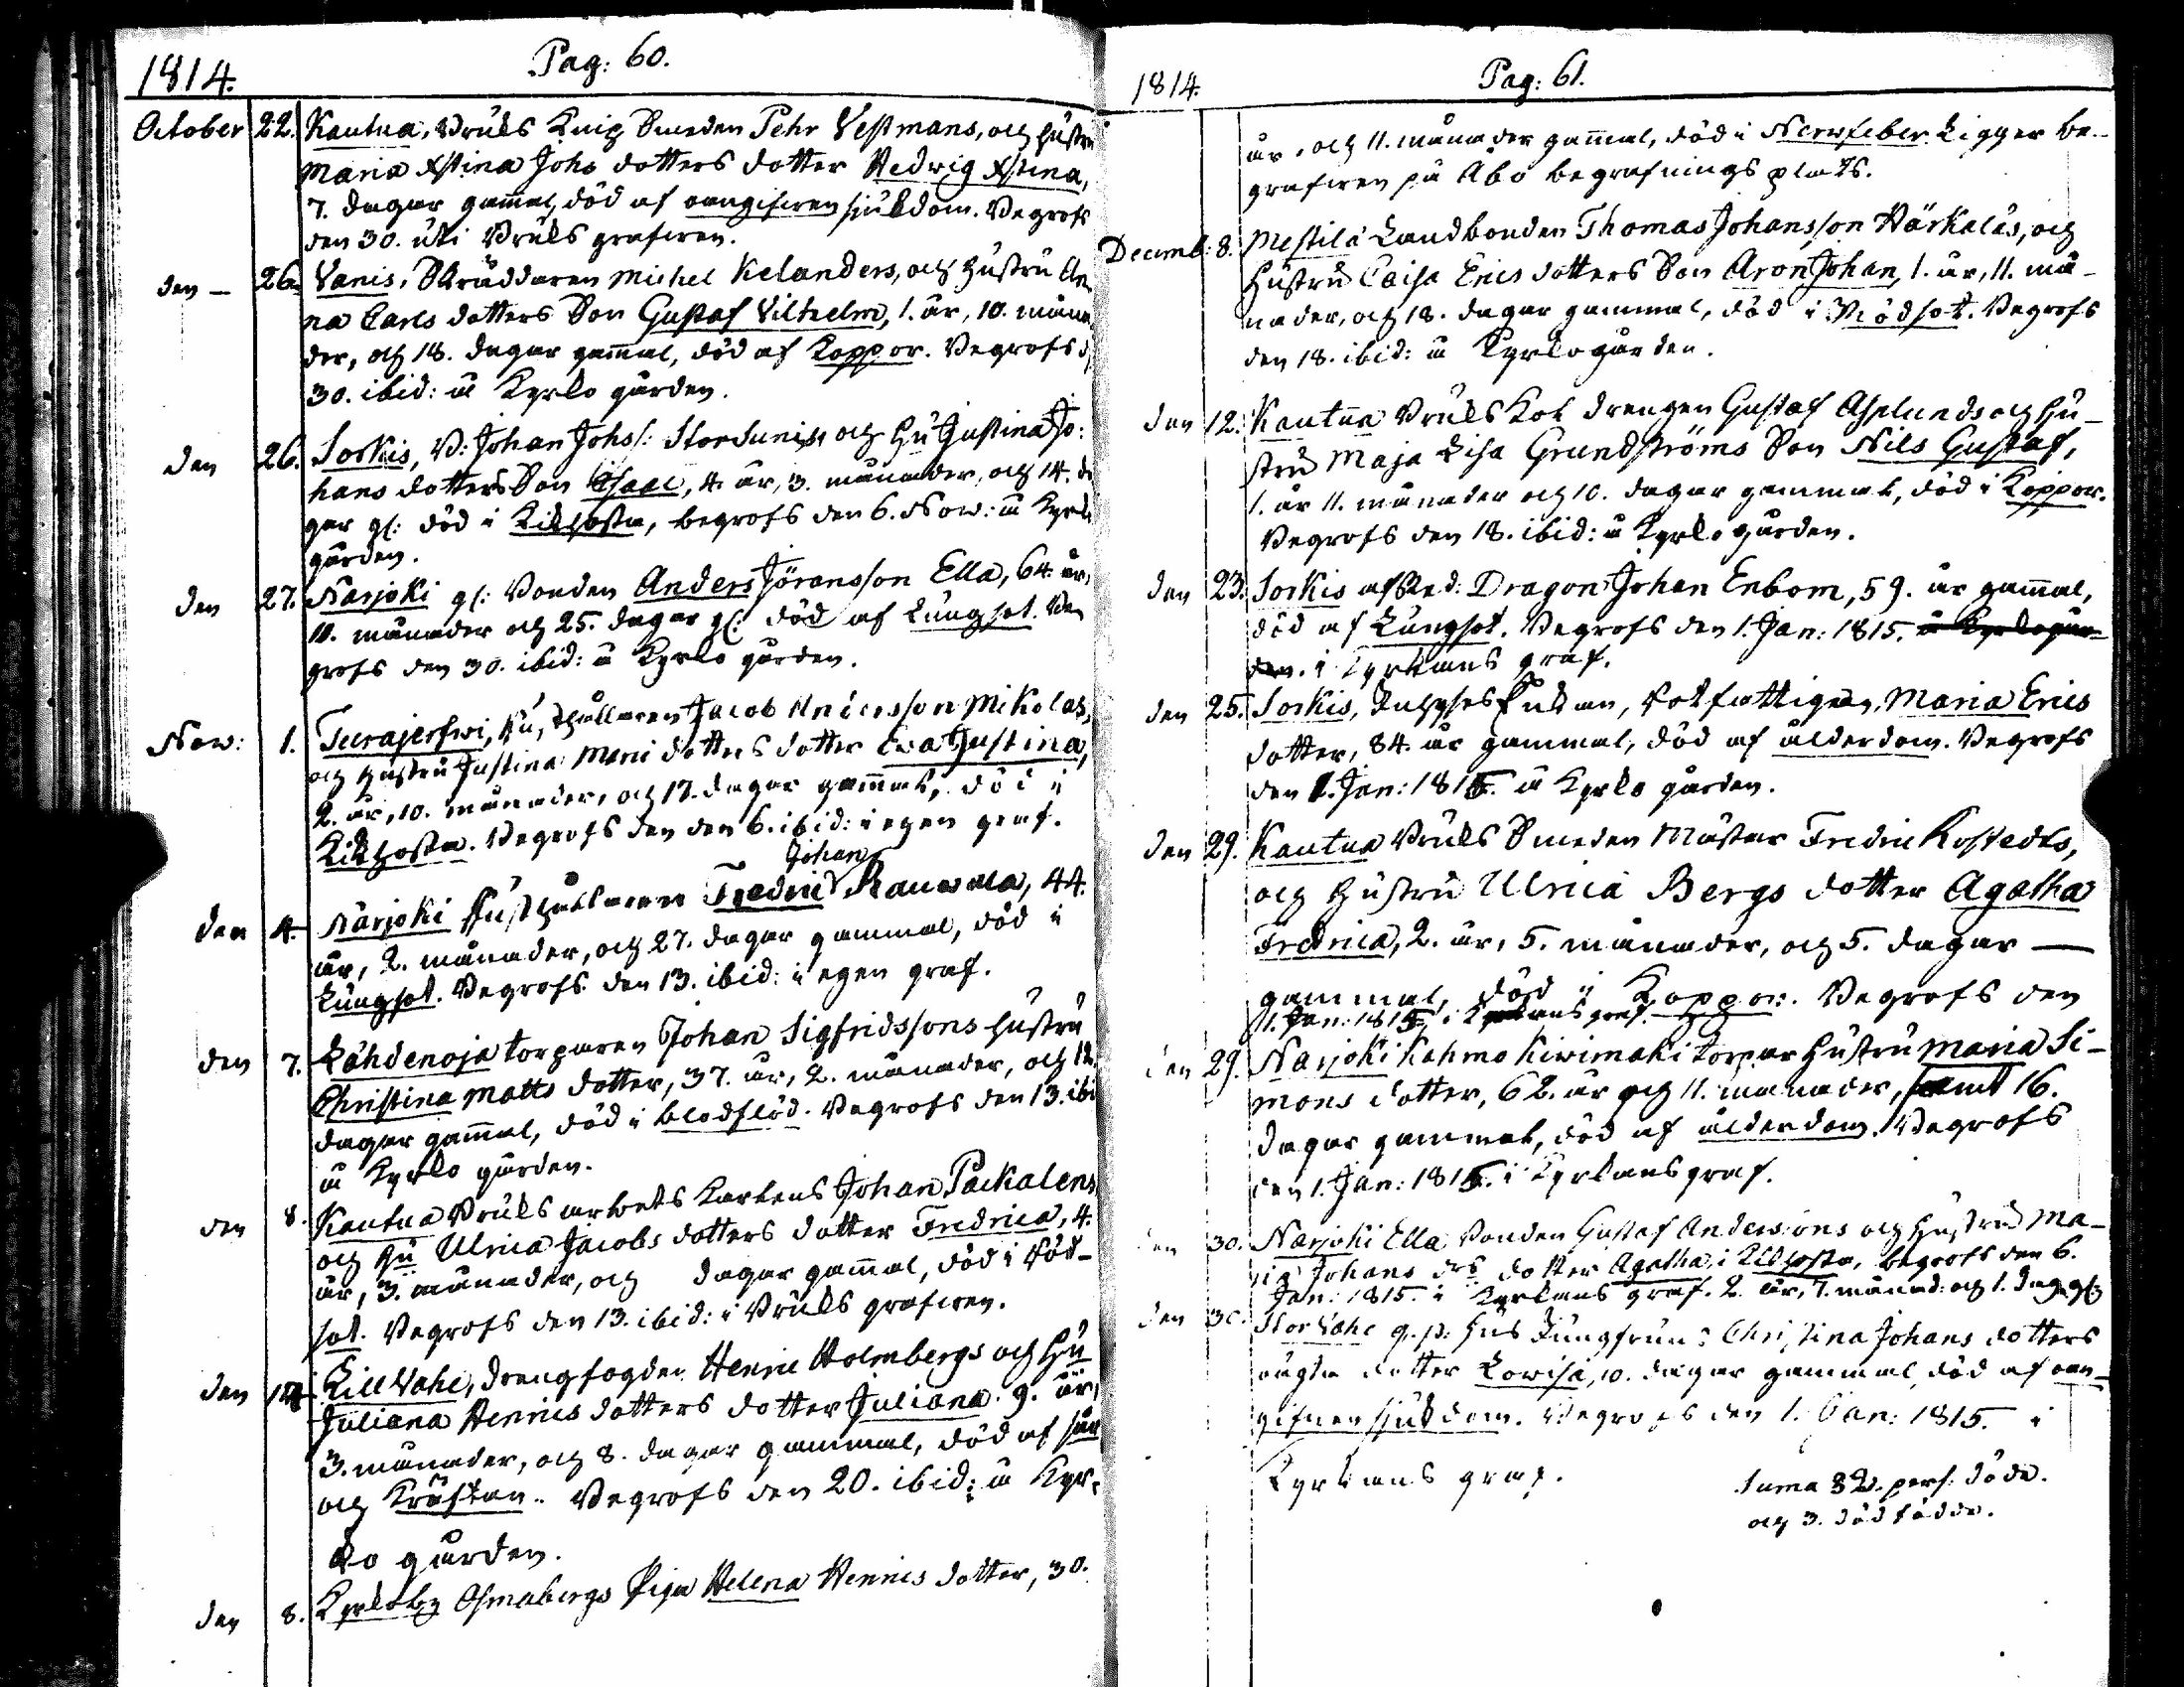 1814.
Pag: 60.
October 22. Kautua, Bruks Knip Smeden Pehr Vestmans, och hustru
Maria Xstina Johs dotters dotter Hedwig Xstina,
7. dagar gamal, död af oangifwen sjukdom. Begrofs
den 30. uti Bruks grafwen.
den — 26. Vanis, Skräddaren Michel Kelanders, och hustru An
na Carls dotters Son Gustaf Vilhelm, 1. år, 10. måna
der, och 18. dagar gamal, död af Koppor. Begrofs d
30. ibid: å Kyrko gården.
den 26. Sorkis, B: Johan Johs: Storsunis, och Hu Justina Jo:
hans dotters Son Isaac, 4. år, 3. månader, och 14. da
gar gl: död i Kikhosta, begrofs den 6. Now: å Kyrko
gården.
den 27. Narjoki gl: Bonden Anders Jöransson Ella, 64. år,
11. månader och 25. dagar gl: död af Lungsot. Be
grofs den 30. ibid: å Kyrko gården.
Now: 1. Turajerfwi, hållaren Jacob Andersson Mikolas,
och hustru Justina dotters dotter Eva Justina,
2. år, 10. månader, och 17. dagar gammal, död i
Kikhosta. Begrofs den den 6. ibid: i egen graf.
Johan
den 4. Närjoki Rusthållaren Fredric Rauwala, 44.
år, 2. månader, och 27. dagar gammal, död i
Lungsot. Begrofs den 13. ibid: i egen graf.
den 7. Lähdenoja torparen Johan Sigfridssons hustru
Christina Matts dotter, 37. år, 2. månader, och 12.
dagar gamal, död i blodflöd. Begrofs den 13. ibi
å Kyrko gården.
den 8. Kautua Bruks arbets Karlens Johan Packalens
och Hu Ulrica Jacobs dotters dotter Fredrica, 4.
år, 3. månader, och dagar gamal, död i Röd-
sot. Begrofs den 13. ibid: i Bruks grafwen.
den 14. Lill Vahe, drengfogden Henric Holmbergs och Hu
Juliana Henrics dotters dotter Juliana. 9. år,
3. månader, och 8. dagar gammal, död af
och Kräftan. Begrofs den 20. ibid: å Kyr-
ko gården.
den 8. Kyrkoby Pigan Helena Henrics dotter, 30.
1814.
Pag: 61.
år, och 11. månader gamal, död i Nerwfeber Ligger be-
grafwen på Åbo begrafnings plats.
Decemb: 8. Mestilä Landbonden Thomas Johansson Härkäläs, och
Hustru Caisa Erics dotters Son Aron Johan, 1. år, 11. må-
nader, och 18. dagar gammal, död i Rödsot. Begrofs
den 18. ibid: å Kyrkogården.
den 12. Kautua Bruks Kol drengen Gustaf Asplunds och Hu-
stru Maja Lisa Grundströms Son Nils Gustaf,
1. år 11. månader och 10. dagar gammal, död i Koppor.
Begrofs den 18. ibid: å Kyrkogården.
den 23. Sorkis afsked: Dragon Johan Enbom, 59. år gamal,
död af Lungsot. Begrofs den 1. Jan: 1815. å Kyrkogår-
den. i Kyrkans graf.
den 25. Sorkis, Enkan, Rotfattigen, Maria Erics
dotter, 84. år gammal, död af ålderdom. Begrofs
den 1. Jan: 1815. å Kyrko gården.
den 29. Kautua Bruks Smeden Mäster Fredric Rostedts,
och Hustru Ulrica Bergs dotter Agatha
Fredrica, 2. år, 5. månader, och 5. dagar —
gammal, död i Koppor. Begrofs den
1. Jan: 1815. i Kyrkans graf.
den 29. Narjoki Kahmo Kiwimaki torpar Hustru Maria Si-
mons dotter, 62. år och 11. månader, samt 16.
dagar gammal, död af ålderdom. Begrofs
den 1. Jan: 1815. i Kyrkans graf.
den 30. Narjoki Ella Bonden Gustaf Anderssons och Hustru Ma-
ria Johans drs dotter Agatha, i Kikhosta, begrofs den 6.
Jan: 1815. i Kyrkans graf. 2. år, 7. månad: och 1. dag gl:
den 30. Stor Vahe q. p: Hus Jungfruns Christina Johans dotters
oägta dotter Lowisa, 10. dagar gammal, död af oan-
gifwen sjukdom. Begrofs den 1. Jan: 1815. i
Kyrkans graf.
Suma 82. pers: döde.
och 3. dödfödde.